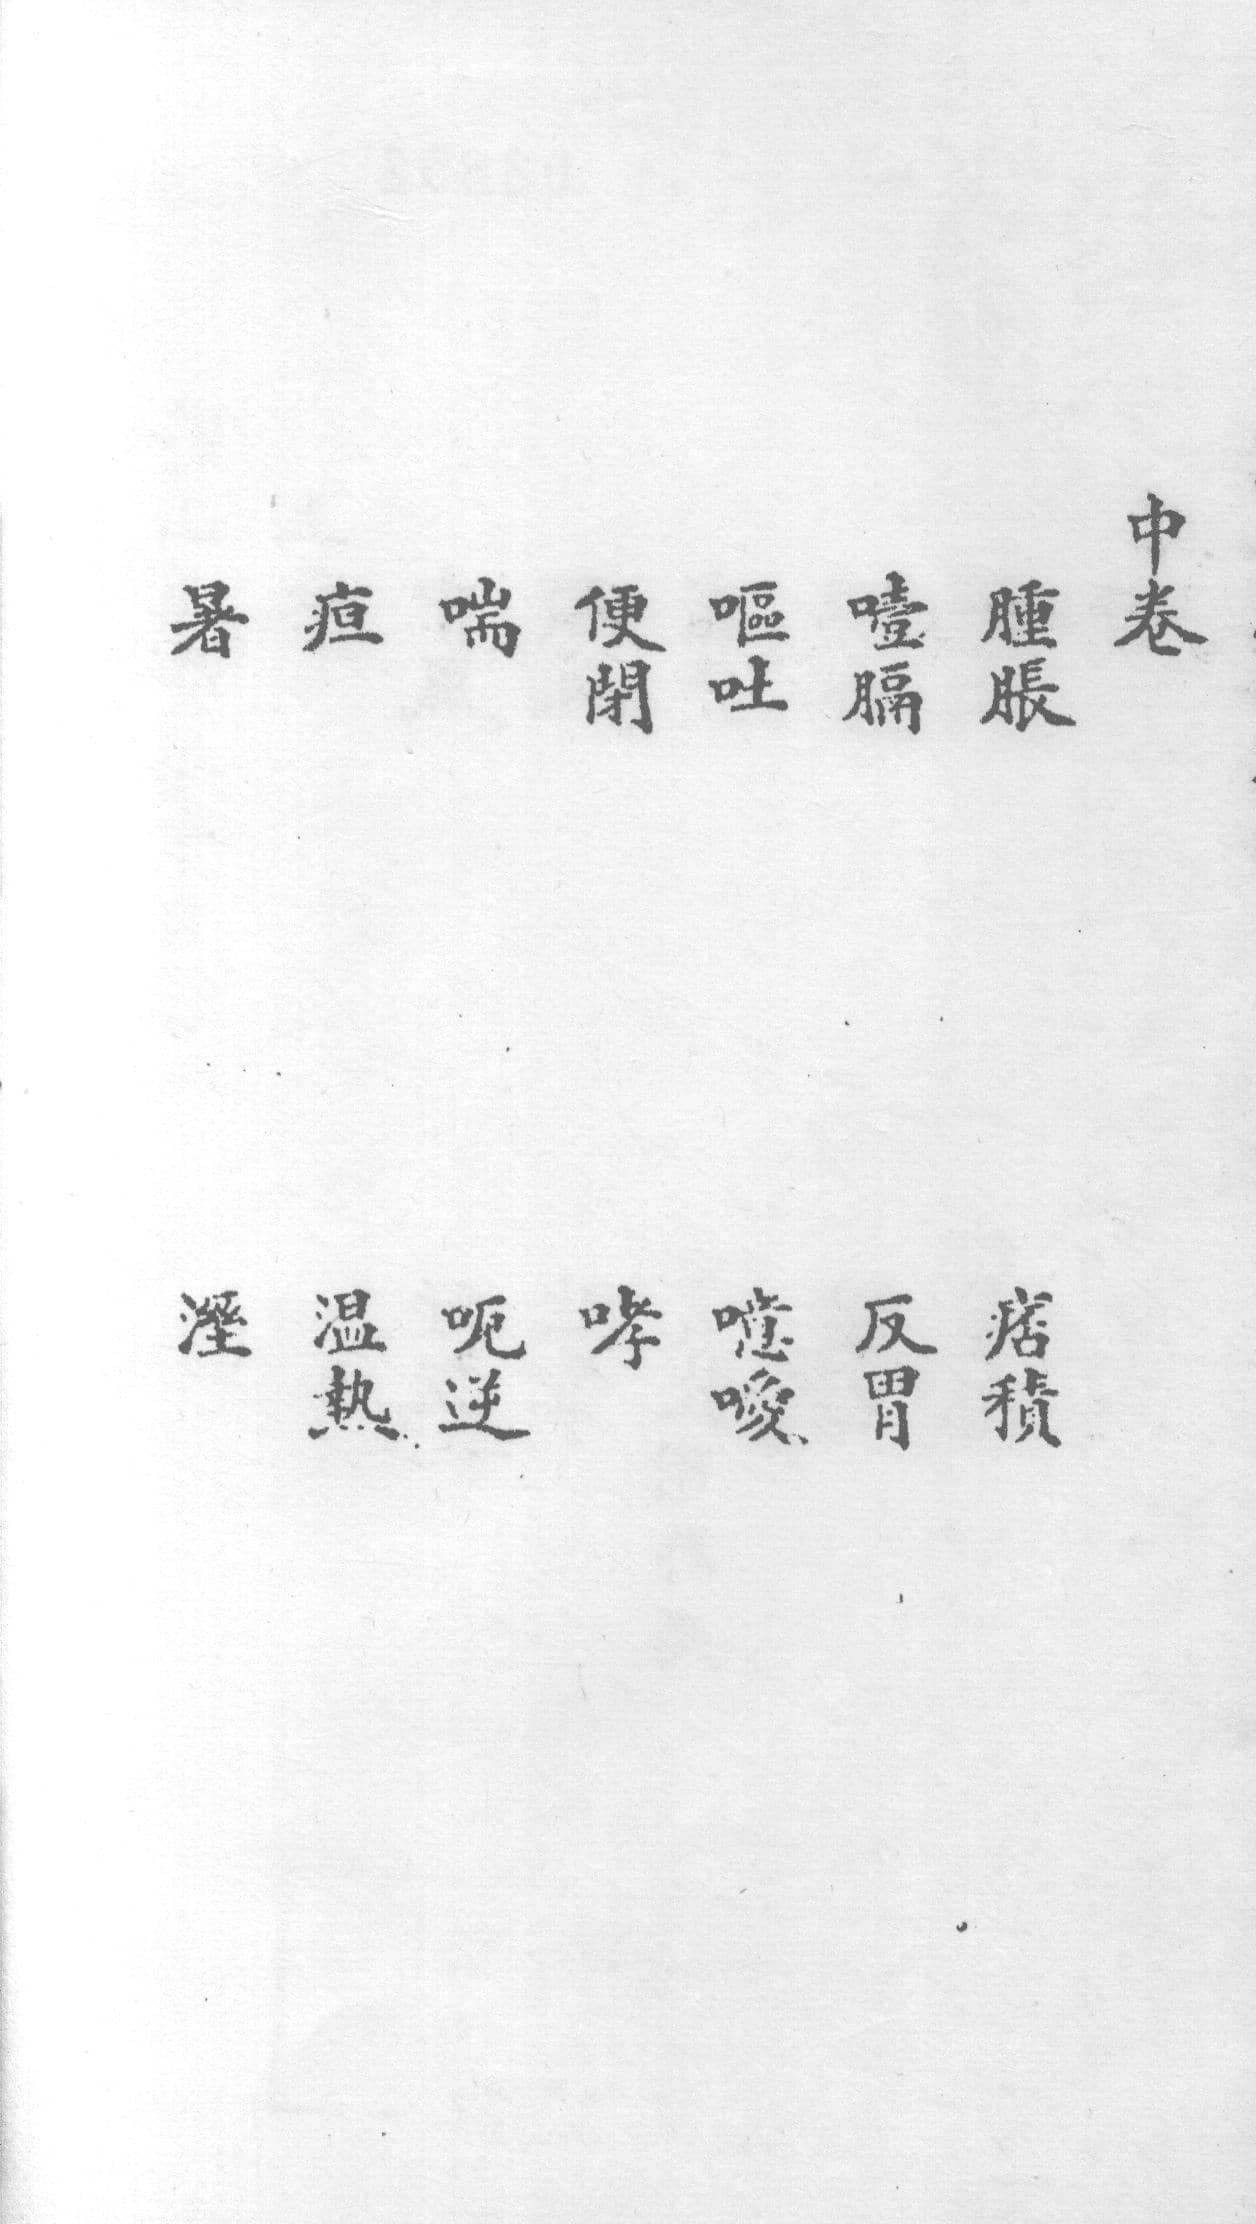 中卷
腫脹　痞積
噎膈　反胃
嘔吐　噫噯
便閉　哮
喘　呃逆
疸　温熱
暑　溼